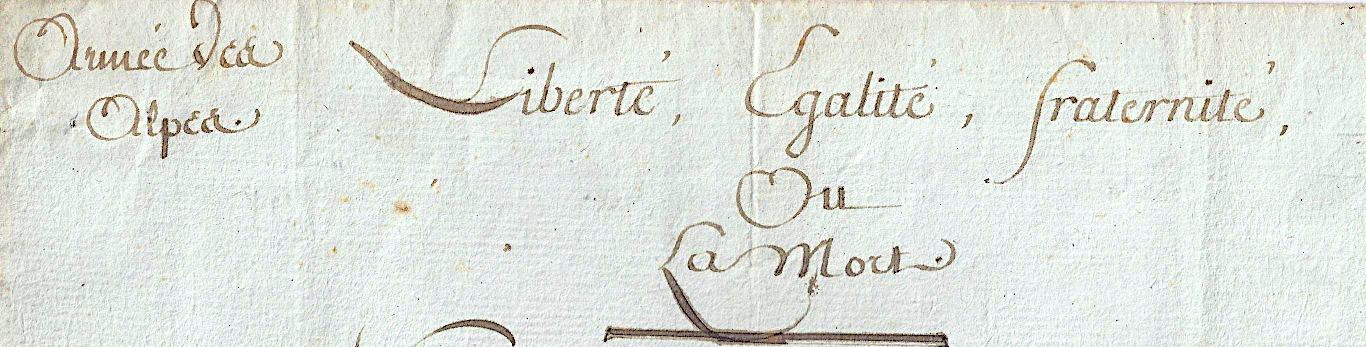 Armée des
Alpes.
Liberté, Egalité, fraternité,
Ou
La Mort.